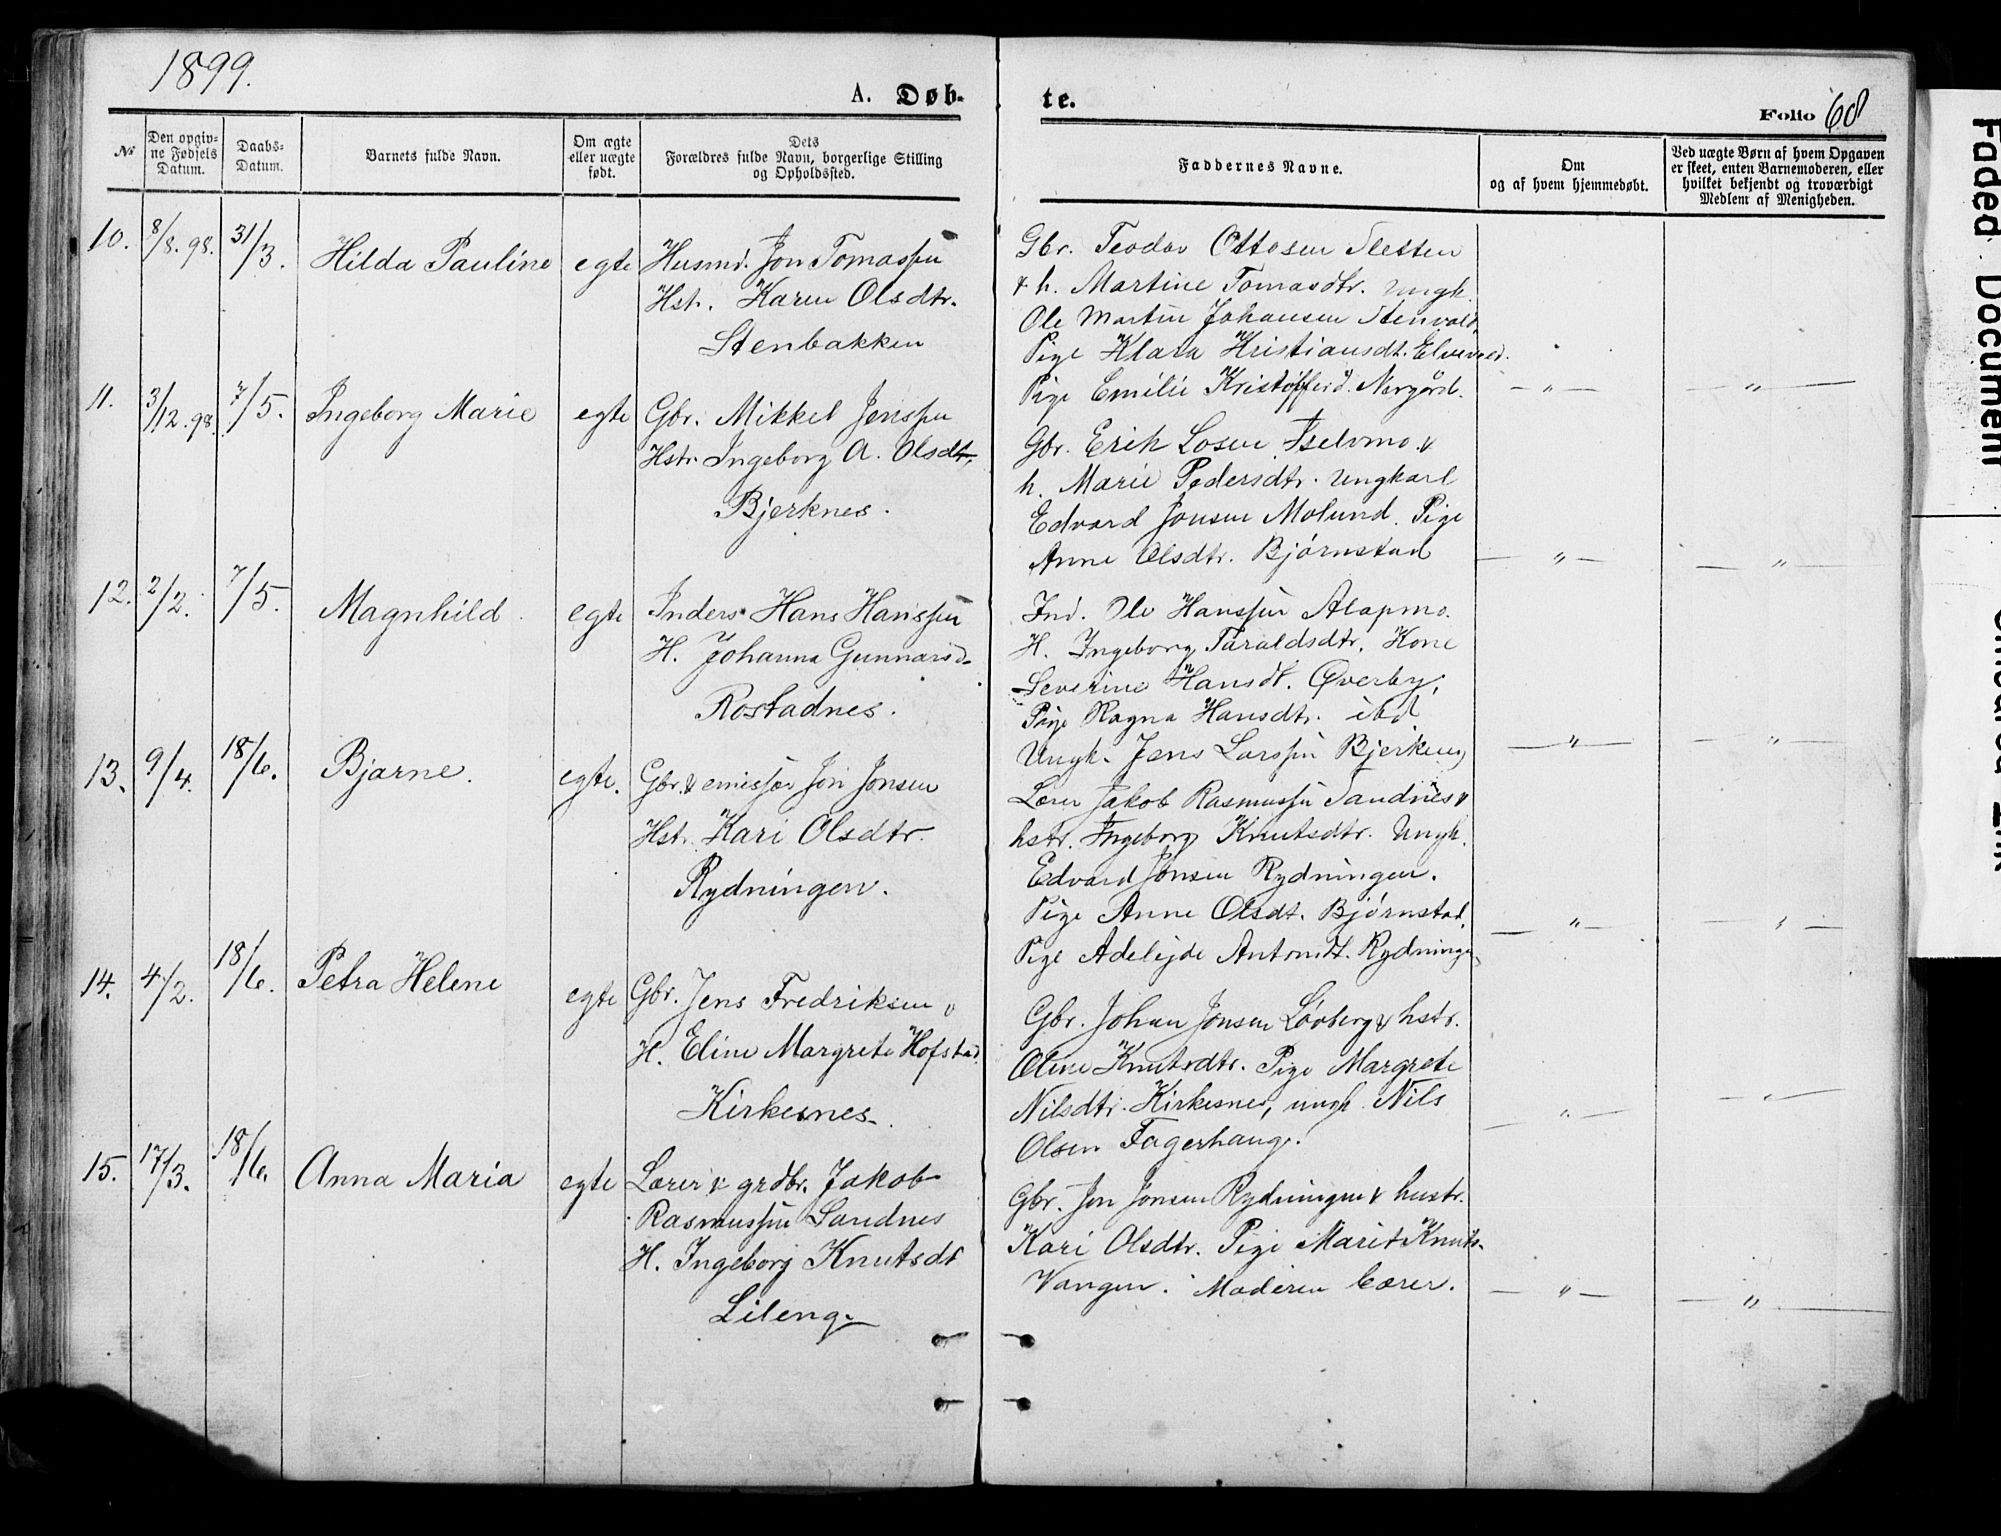 1899.
A. Døb-
te.
Folio 68
№
Den opgiv-
ne Fødsels
Datum.
Daabs-
Datum.
Barnets fulde Navn.
Om ægte
eller uægte
født.
Dets
Forældres fulde Navn, borgerlige Stilling
og Opholdssted.
Faddernes Navne.
Om
og af hvem hjemmedøbt.
Ved uægte Børn af hvem Opgaven
er skeet, enten Barnemoderen, eller
hvilket bekjendt og troværdigt
Medlem af Menigheden.
10. 8/8.98. 31/3. Hilda Pauline egte Husmd. Jon Tomassen
Hst. Karen Olsdtr.
Stenbakken
Gbr. Teodor Ottosen Sletten
& h. Martine Tomasdtr. Ungk.
Ole Martin Johansen Stenvold
Pige Klara Kristiansdt. Elvevold.
Pige Emilie Kristofferd. Nergård.
— „ — — „ —
11. 3/12.98. 7/5. Ingeborg Marie egte Gbr. Mikkel Jenssen
Hstr. Ingeborg A. Olsdtr,
Bjerknes.
Gbr. Erik Losen Iselvmo &
h. Marie Pedersdtr. Ungkarl
Edvard Jonsen Molund. Pige
Anne Olsdtr. Bjørnstad
— „ — — „ —
12. 2/2. 7/5. Magnhild egte Inders Hans Hanssen
H. Johanna Gunnarsd.
Rostadnes.
Ind. Ole Hanssen Alapmo.
H. Ingeborg Taraldsdtr. Kone
Severine Hansdt. Øverby,
Pige Ragna Hansdtr. ibd
Ungk. Jens Larssen Bjerknes
— „ — — „ —
13. 9/4. 18/6. Bjarne. egte. Gbr. & emissær Jon Jonsen
Hst. Kari Olsdtr.
Rydningen.
Lærer Jakob Rasmussen Sandnes &
hstr. Ingeborg Knutsdtr. Ungk.
Edvard Jonsen Rydningen.
Pige Anne Olsdt. Bjørnstad,
Pige Adelejde Antonsdt. Rydningen
— „ — — „ —
14. 4/2. 18/6. Petra Helene egte Gbr. Jens Fredriksen &
H. Eline Margrete Hofstad.
Kirkesnes.
Gbr. Johan Jonsen Løvberg & hstr.
Oline Knutsdtr. Pige Margrete
Nilsdtr. Kirkesnes, ungk. Nils
Olsen Fagerhaug.
— „ — — „ —
15. 17/3. 18/6. Anna Maria egte Lærer & grdbr. Jakob
Rasmussen Sandnes
H. Ingeborg Knutsdt
Lileng.
Gbr. Jon Jonsen Rydningen & hustr.
Kari Olsdtr. Pige Marit Knuts-
Vangen. Moderen bærer.
— „ — — „ —
Faded Document